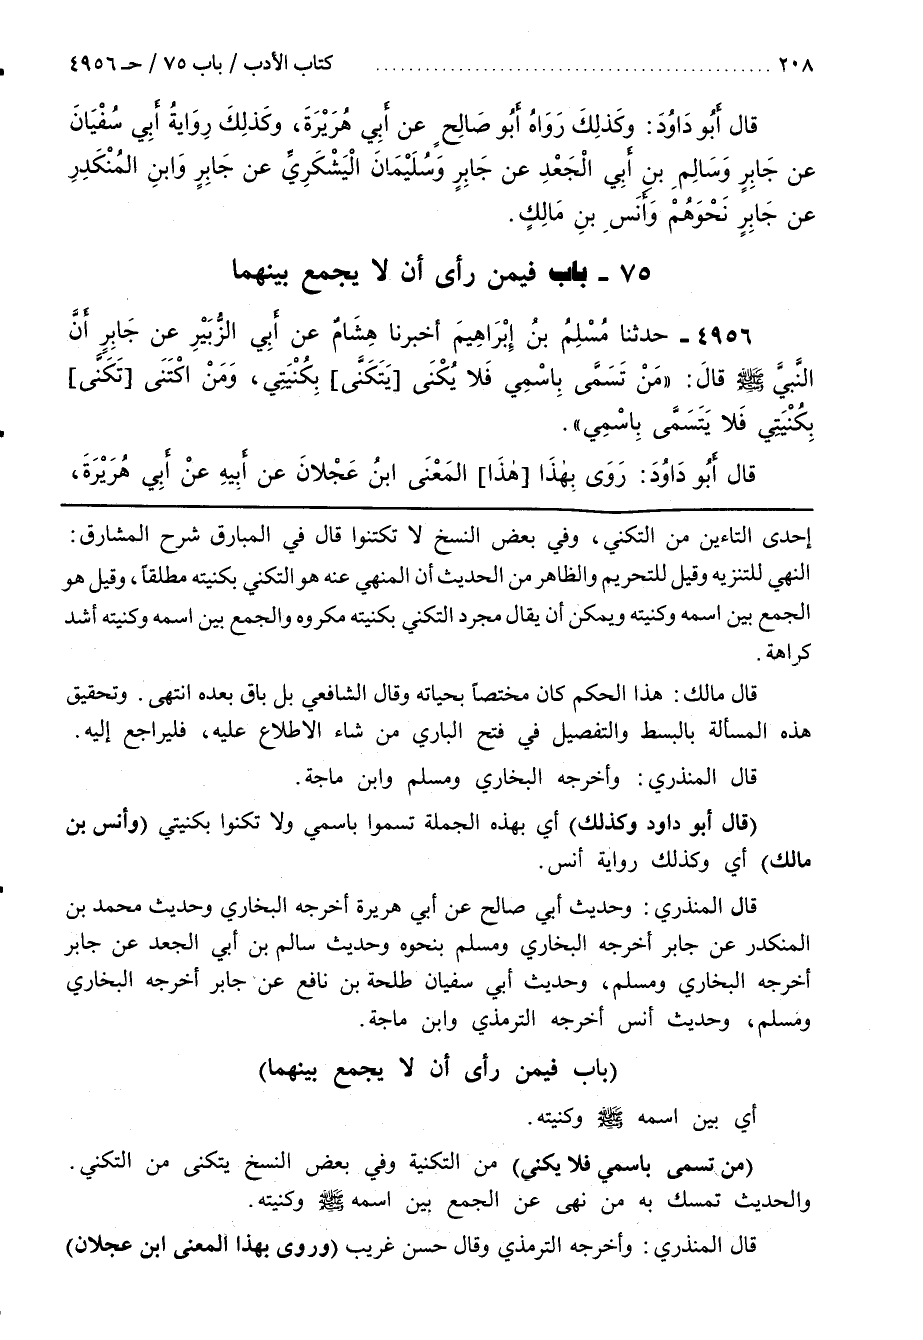 ٢٠٨ ............................................. كتاب الأدب / باب ٧٥ / حـ ٤٩٥٦
قال أَبُو دَاوُدَ: وكَذلِكَ رَوَاهُ أَبُو صَالحٍ عن أَبي هُرَيْرَةَ، وكَذلِكَ رِوايَةُ أَبي سُفْيَانَ
عن جَابِرٍ وَسَالِمِ بنِ أَبي الْجَعْدِ عن جَابِرٍ وَسُلَيْمَانَ الْيَشْكَرِيِّ عن جَابِرٍ وَابنِ المُنْكَدِرِ
عن جَابِرٍ نَحْوَهُمْ وَأَنَسِ بنِ مَالِكٍ.
٧٥ ـ باب فيمن رأى أن لا يجمع بينهما
٤٩٥٦ ـ حدثنا مُسْلِمُ بنُ إِبْرَاهِيمَ أخبرنا هِشَامٌ عن أَبي الزُّبَيْرِ عن جَابِرٍ أَنَّ
النَّبيَّ ﷺ قالَ: «مَنْ تَسَمَّى بِاسْمِي فَلا يُكْنَى [يَتَكَنَّى] بِكُنْيَتِي، وَمَنْ اكْتَنَى [تَكَنَّى]
بِكُنْيَتِي فَلا يَتَسَمَّى بِاسْمِي».
قال أَبُو دَاوُدَ: رَوَى بِهٰذَا [هٰذَا] المَعْنَى ابنُ عَجْلانَ عن أَبيهِ عنْ أَبي هُرَيْرَةَ،
إحدى التاءين من التكني، وفي بعض النسخ لا تكتنوا قال في المبارق شرح المشارق:
النهي للتنزيه وقيل للتحريم والظاهر من الحديث أن المنهي عنه هو التكني بكنيته مطلقاً، وقيل هو
الجمع بين اسمه وكنيته ويمكن أن يقال مجرد التكني بكنيته مكروه والجمع بين اسمه وكنيته أشد
كراهة.
قال مالك: هذا الحكم كان مختصاً بحياته وقال الشافعي بل باق بعده انتهى. وتحقيق
هذه المسألة بالبسط والتفصيل في فتح الباري من شاء الاطلاع عليه، فليراجع إليه.
قال المنذري: وأخرجه البخاري ومسلم وابن ماجة.
(قال أبو داود وكذلك) أي بهذه الجملة تسموا باسمي ولا تكنوا بكنيتي (وأنس بن
مالك) أي وكذلك رواية أنس.
قال المنذري: وحديث أبي صالح عن أبي هريرة أخرجه البخاري وحديث محمد بن
المنكدر عن جابر أخرجه البخاري ومسلم بنحوه وحديث سالم بن أبي الجعد عن جابر
أخرجه البخاري ومسلم، وحديث أبي سفيان طلحة بن نافع عن جابر أخرجه البخاري
ومسلم، وحديث أنس أخرجه الترمذي وابن ماجة.
(باب فيمن رأى أن لا يجمع بينهما)
أي بين اسمه ﷺ وكنيته.
(من تسمى باسمي فلا يكنى) من التكنية وفي بعض النسخ يتكنى من التكني.
والحديث تمسك به من نهى عن الجمع بين اسمه ﷺ وكنيته.
قال المنذري: وأخرجه الترمذي وقال حسن غريب (وروى بهذا المعنى ابن عجلان)